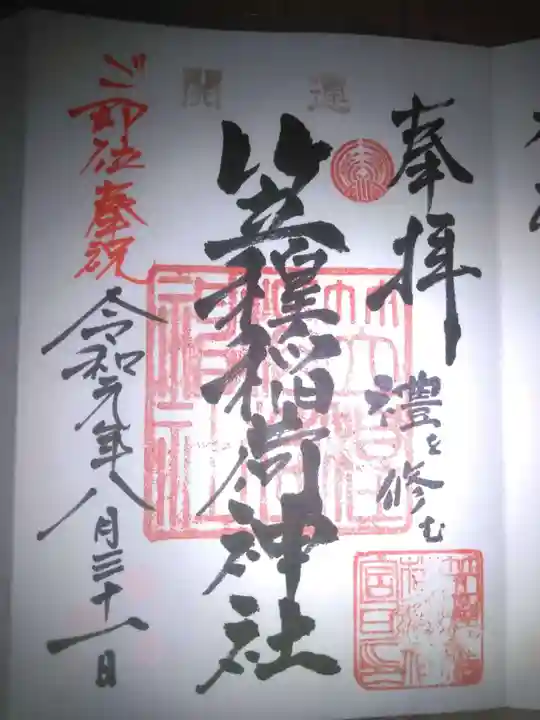 開運
奉拝
禮を修む
笠䅣稲荷神社
ご即位奉祝
令和元年八月三十一日